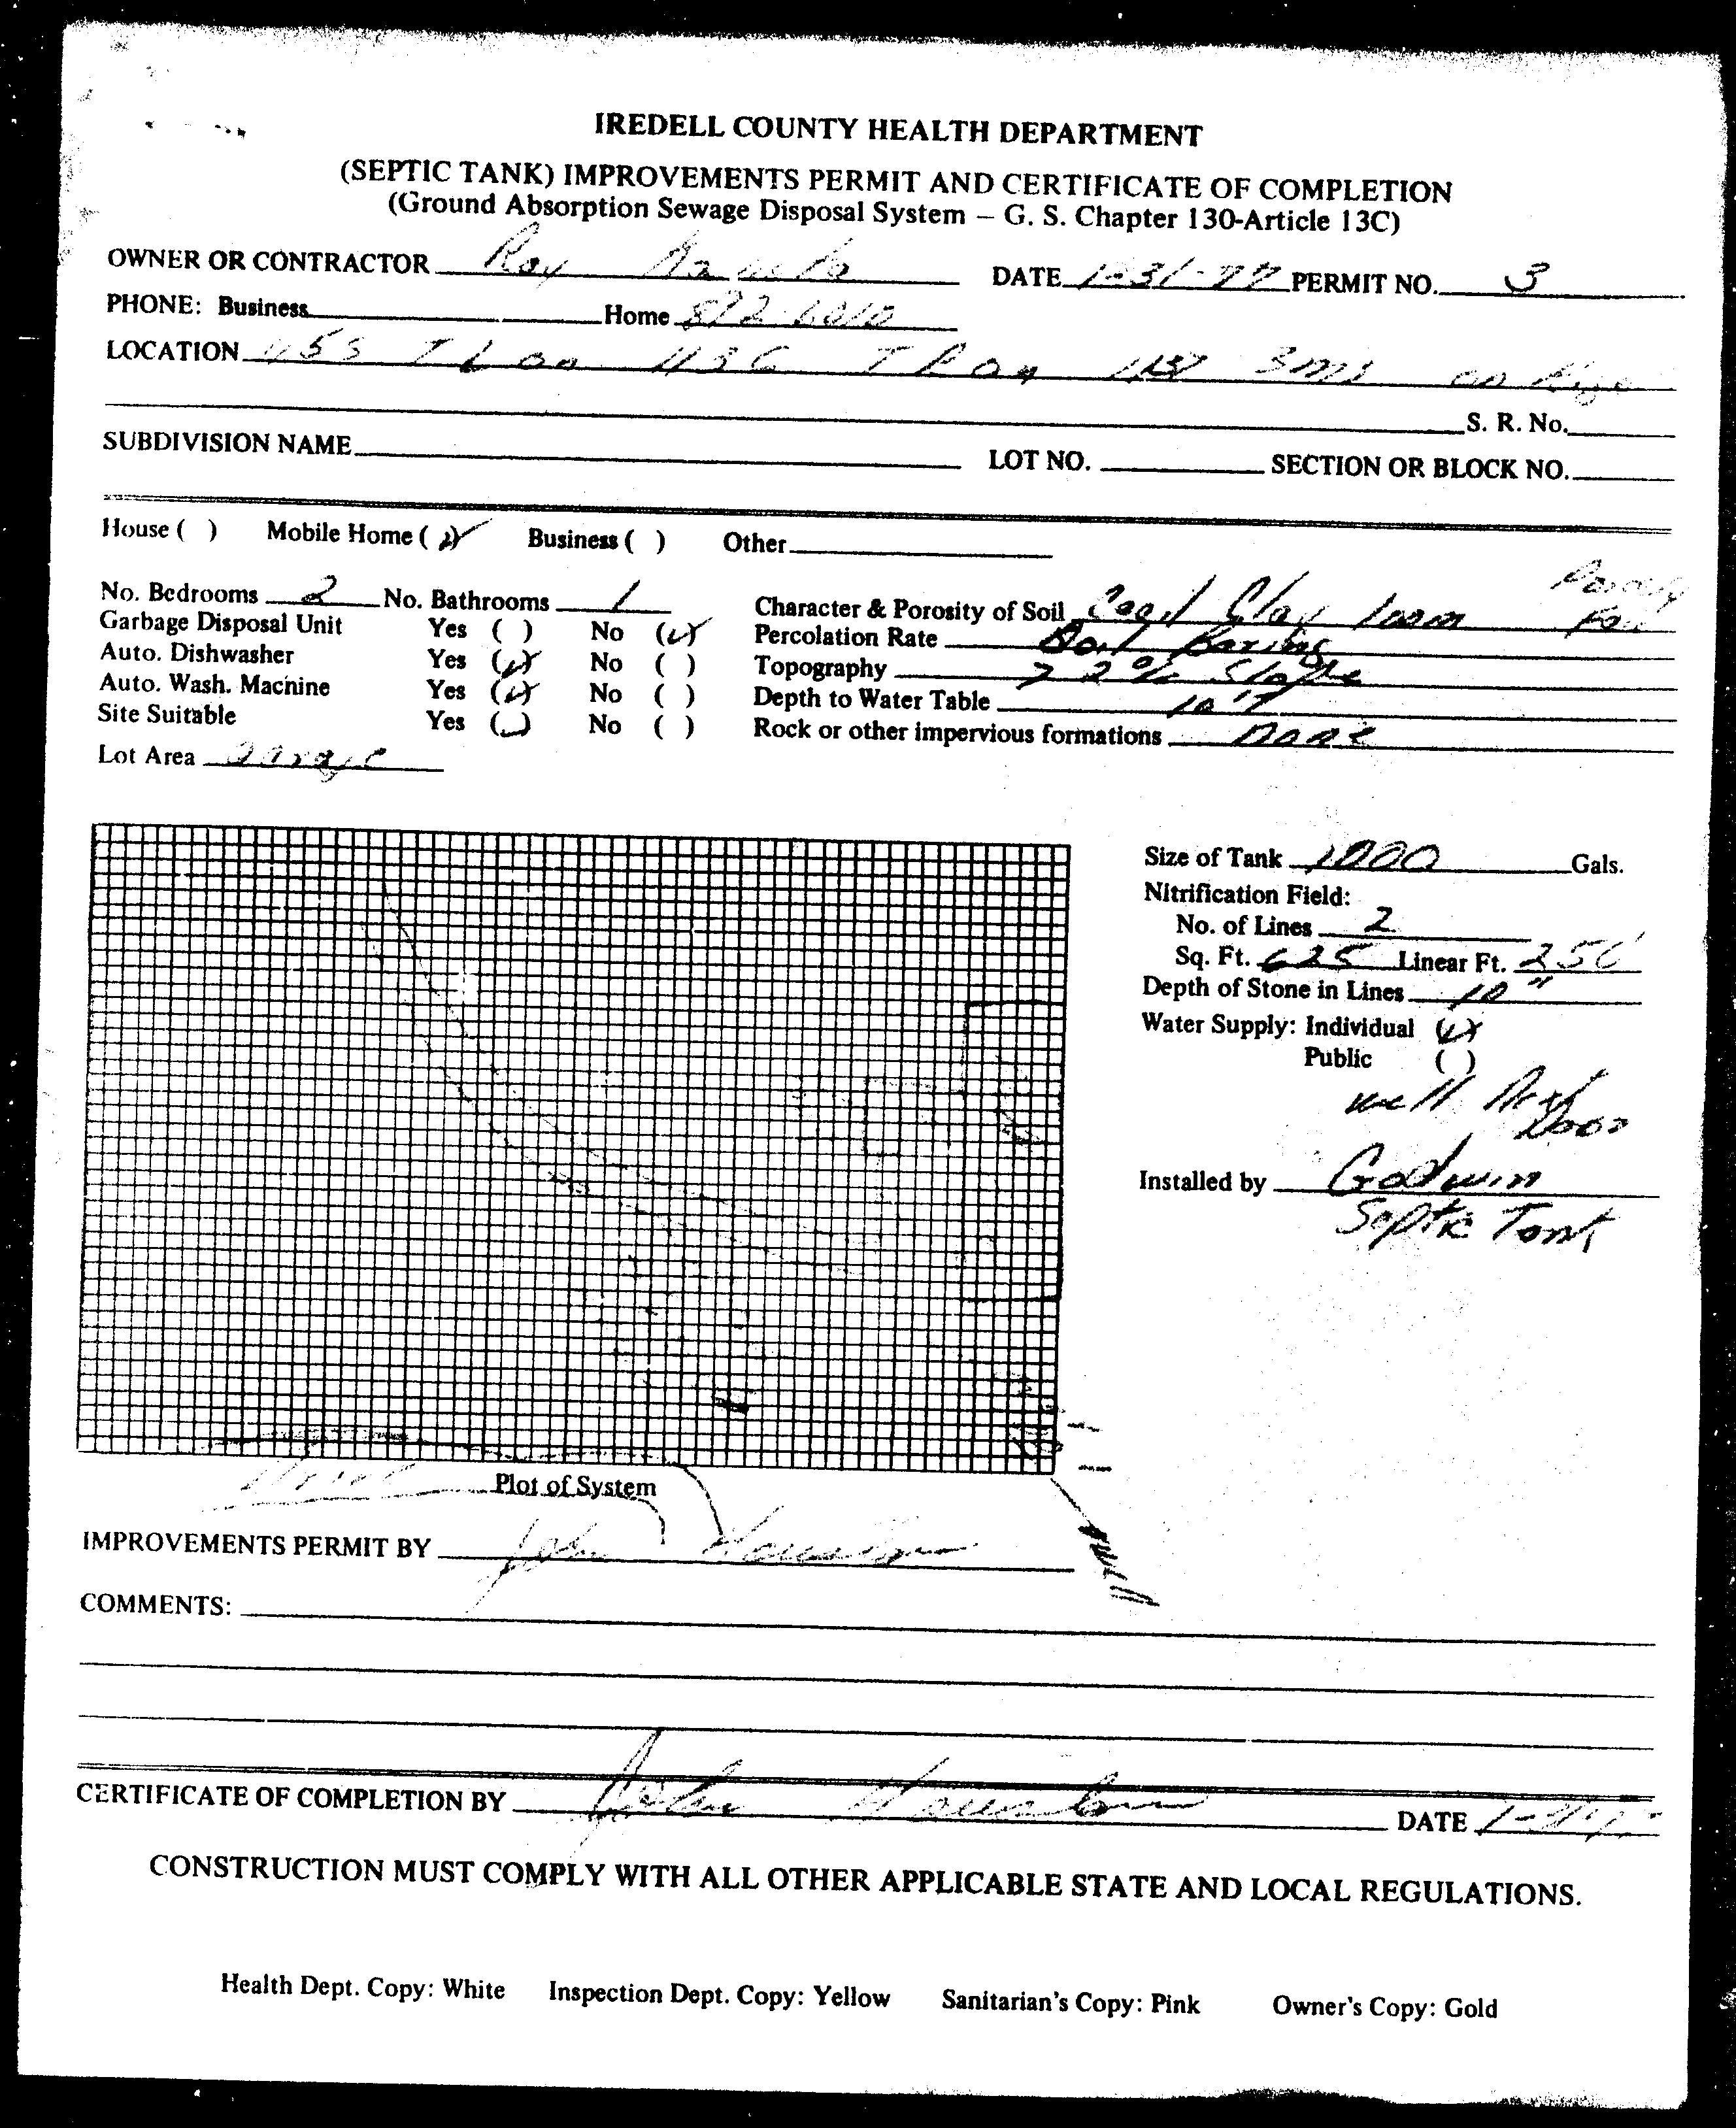 IREDELL COUNTY HEALTH DEPARTMENT
(SEPTIC TANK) IMPROVEMENTS PERMIT AND CERTIFICATE OF COMPLETION
(Ground Absorption Sewage Disposal System – G. S. Chapter 130-Article 13C)
OWNER OR CONTRACTOR Roy DATE 1-31-77 PERMIT NO. 3
PHONE: Business Home
LOCATION on
S. R. No.
SUBDIVISION NAME LOT NO. SECTION OR BLOCK NO.
House ( ) Mobile Home (✓) Business ( ) Other
No. Bedrooms 2 No. Bathrooms 1 Character & Porosity of Soil Cecil Clay loam
Garbage Disposal Unit Yes ( ) No (✓) Percolation Rate Soil Boring
Auto. Dishwasher Yes (✓) No ( ) Topography > 2% Slope
Auto. Wash. Machine Yes (✓) No ( ) Depth to Water Table
Site Suitable Yes (✓) No ( ) Rock or other impervious formations none
Lot Area
Size of Tank 1000 Gals.
Nitrification Field:
No. of Lines 2
Sq. Ft. 625 Linear Ft. 250
Depth of Stone in Lines 10"
Water Supply: Individual (✓)
Public ( )
well Next
Door
Installed by Godwin
Septic Tank
Plot of System
well
IMPROVEMENTS PERMIT BY John
COMMENTS:
CERTIFICATE OF COMPLETION BY John DATE
CONSTRUCTION MUST COMPLY WITH ALL OTHER APPLICABLE STATE AND LOCAL REGULATIONS.
Health Dept. Copy: White Inspection Dept. Copy: Yellow Sanitarian's Copy: Pink Owner's Copy: Gold